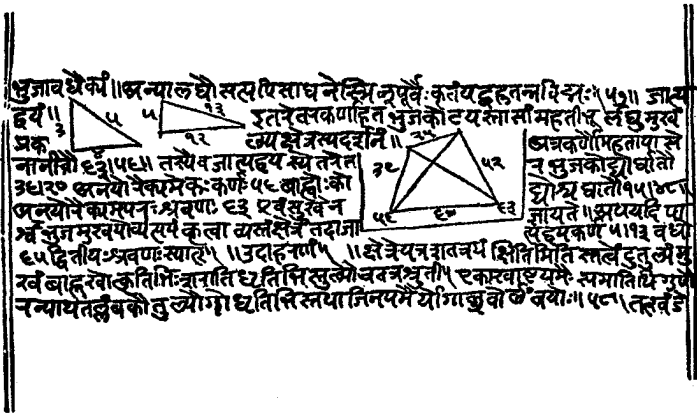 भुजावधैक्यं॥ अन्यालघौसत्यपिसाधनेस्मिन्पूर्वैःकृतंयद्गुरुतन्नविद्मः॥५७॥ जात्य
द्वयं॥ ३ ५ ५ १३ १२ इतरेतरकर्णाहतभुजकोटयस्तासांमहतीभूर्लघुमुखं
प्रक न्यक्षेत्रस्यदर्शनं॥ अत्रकर्णौमहतायासे
२५ ३९ ५२ ५६ ६० ६३
नानीतौ ६३।५६॥ तस्यैवजात्यद्वयस्येतरेत र भुजकोट्योर्घातौ
३६।२० अनयोरैक्यमेकःकर्णः ५६ बाह्वोःको ट्योश्चघातौ१५।४८॥
अनयोरैक्यमपरःश्रवणः ६३ एवंसुखेन जायते॥ अथयदिपा
र्श्वभुजमुखयोर्व्यत्ययंकृत्वान्यस्तंक्षेत्रंतदाजा त्यद्वयकर्ण५।१३वधो
६५द्वितीयःश्रवणःस्यात्॥ ॥उदाहरणं॥ ॥क्षेत्रेयत्रशतत्रयंक्षितिमितिस्तत्वेंदुतुल्यंमु
खंबाहूखोत्कृतिभिःशरातिधृतिभिस्तुल्यौचतत्रश्रुती॥ एकाखाष्टयमैःसमातिथिगुणै
रन्याथतल्लंबकौतुल्यौगोधृतिभिस्तथाजिनयमैर्योगाच्छ्रवोलंबयोः॥५८॥ तत्खंडे